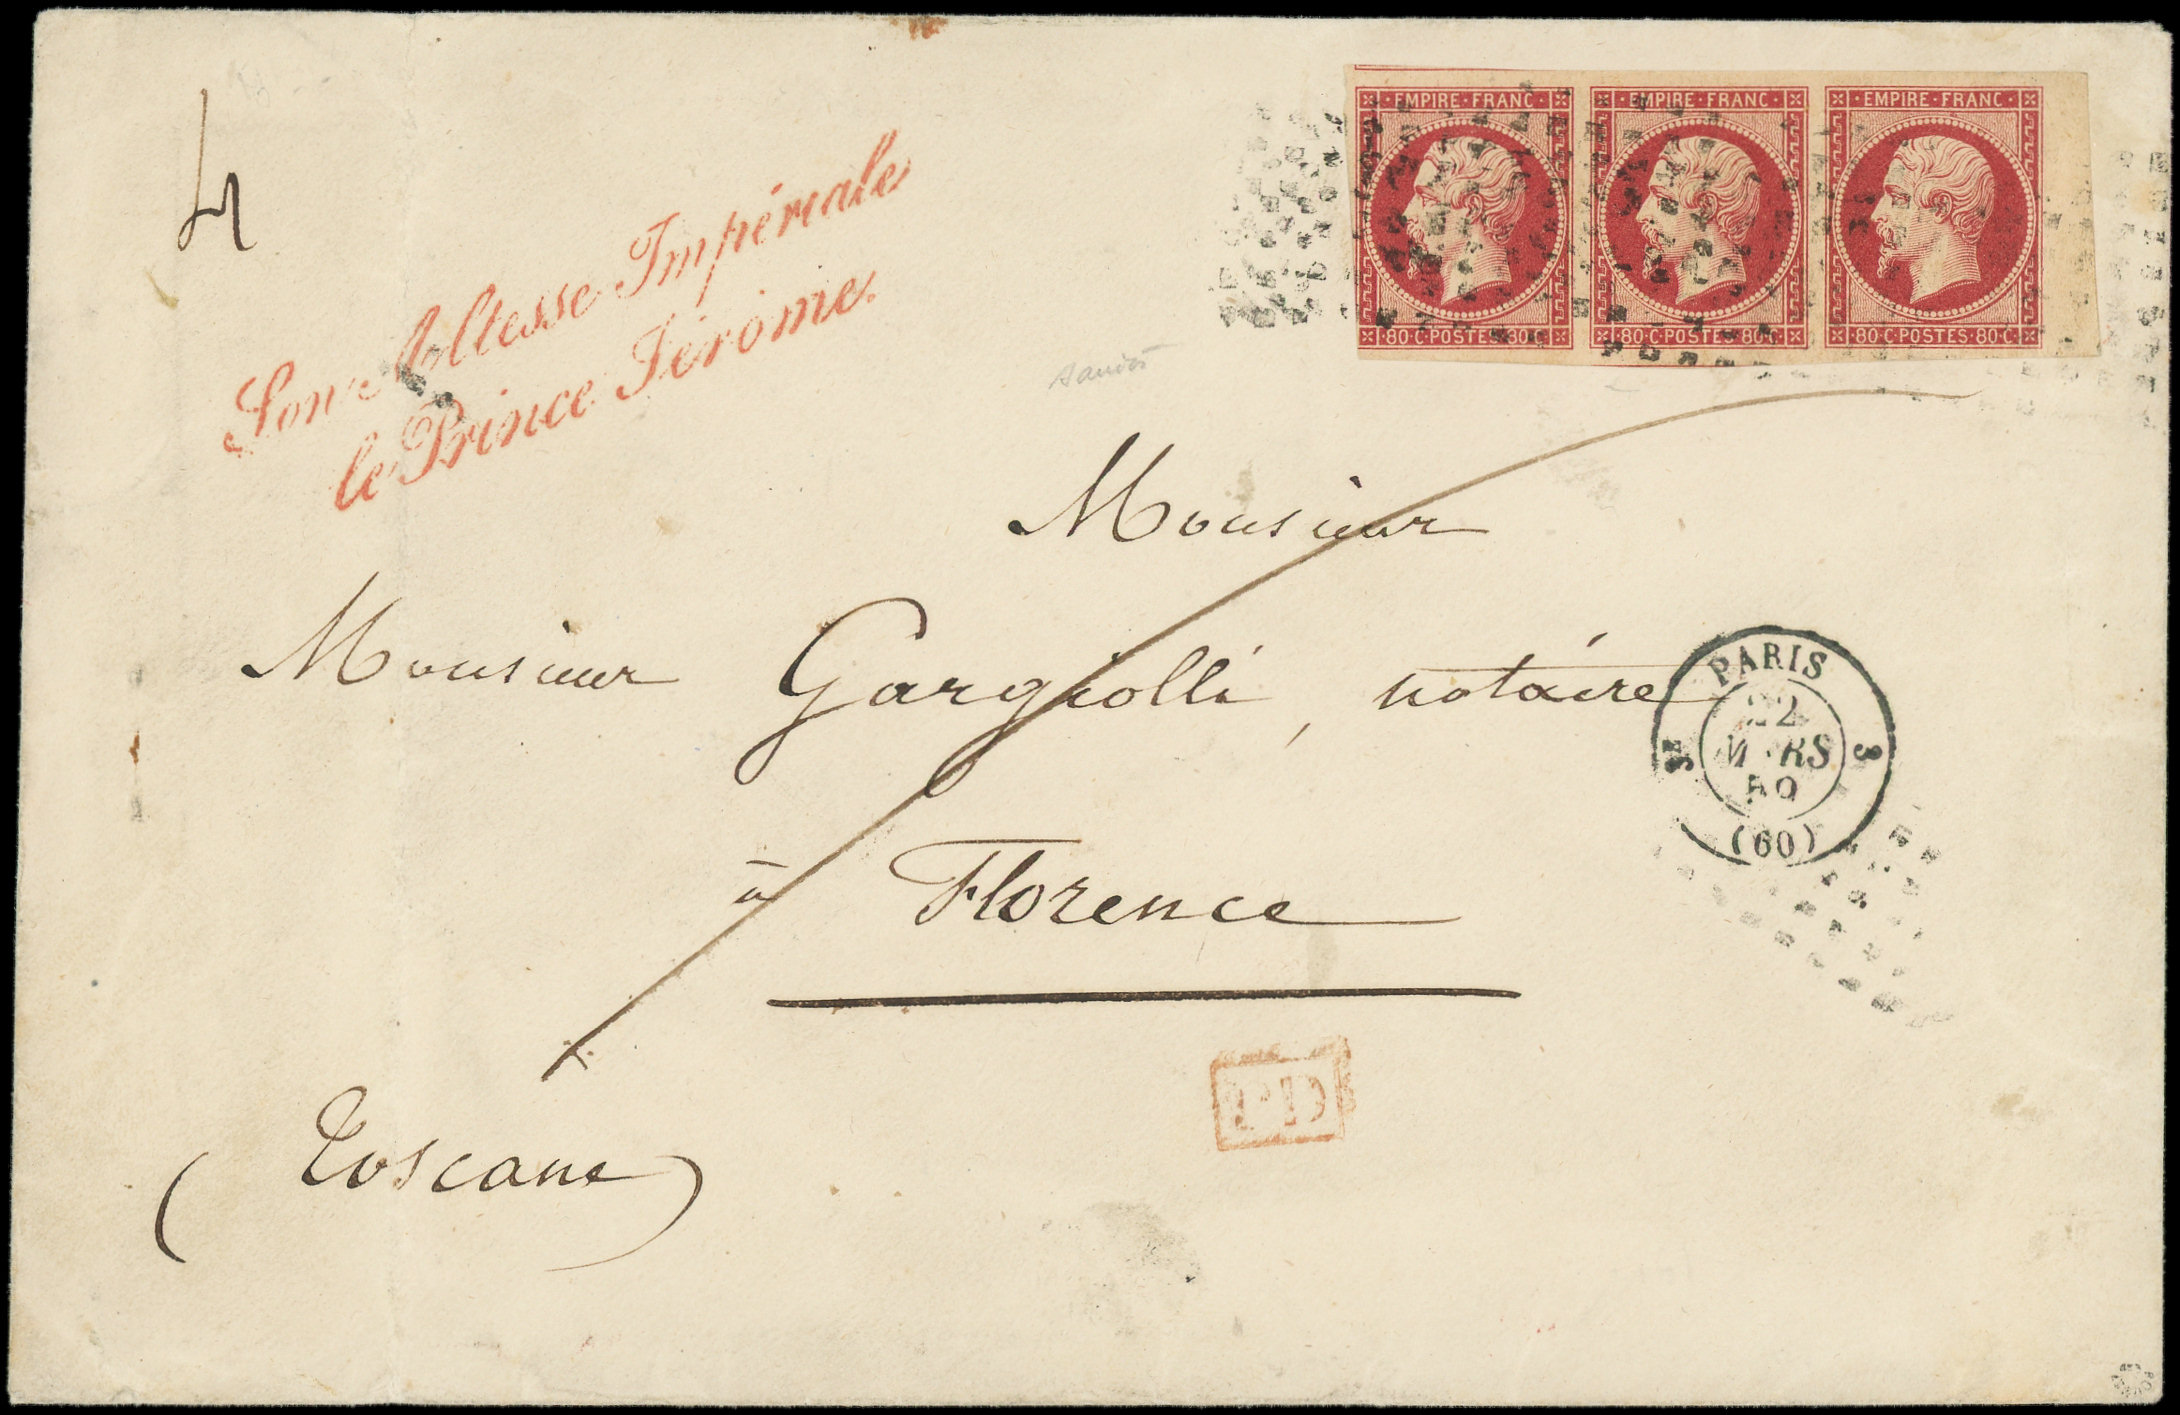 4
Son Altesse Impériale
le Prince Jérôme.
EMPIRE · FRANC ·
· EMPIRE · FRANC ·
· EMPIRE · FRANC ·
· 80 · C · POSTES · 80 ·
· 80 · C · POSTES · 80 · C ·
· 80 · C · POSTES · 80 · C ·
Monsieur
Monsieur Gargiolli, notaire
à Florence
(Toscane)
PARIS
22
MARS
59
(60)
P.D